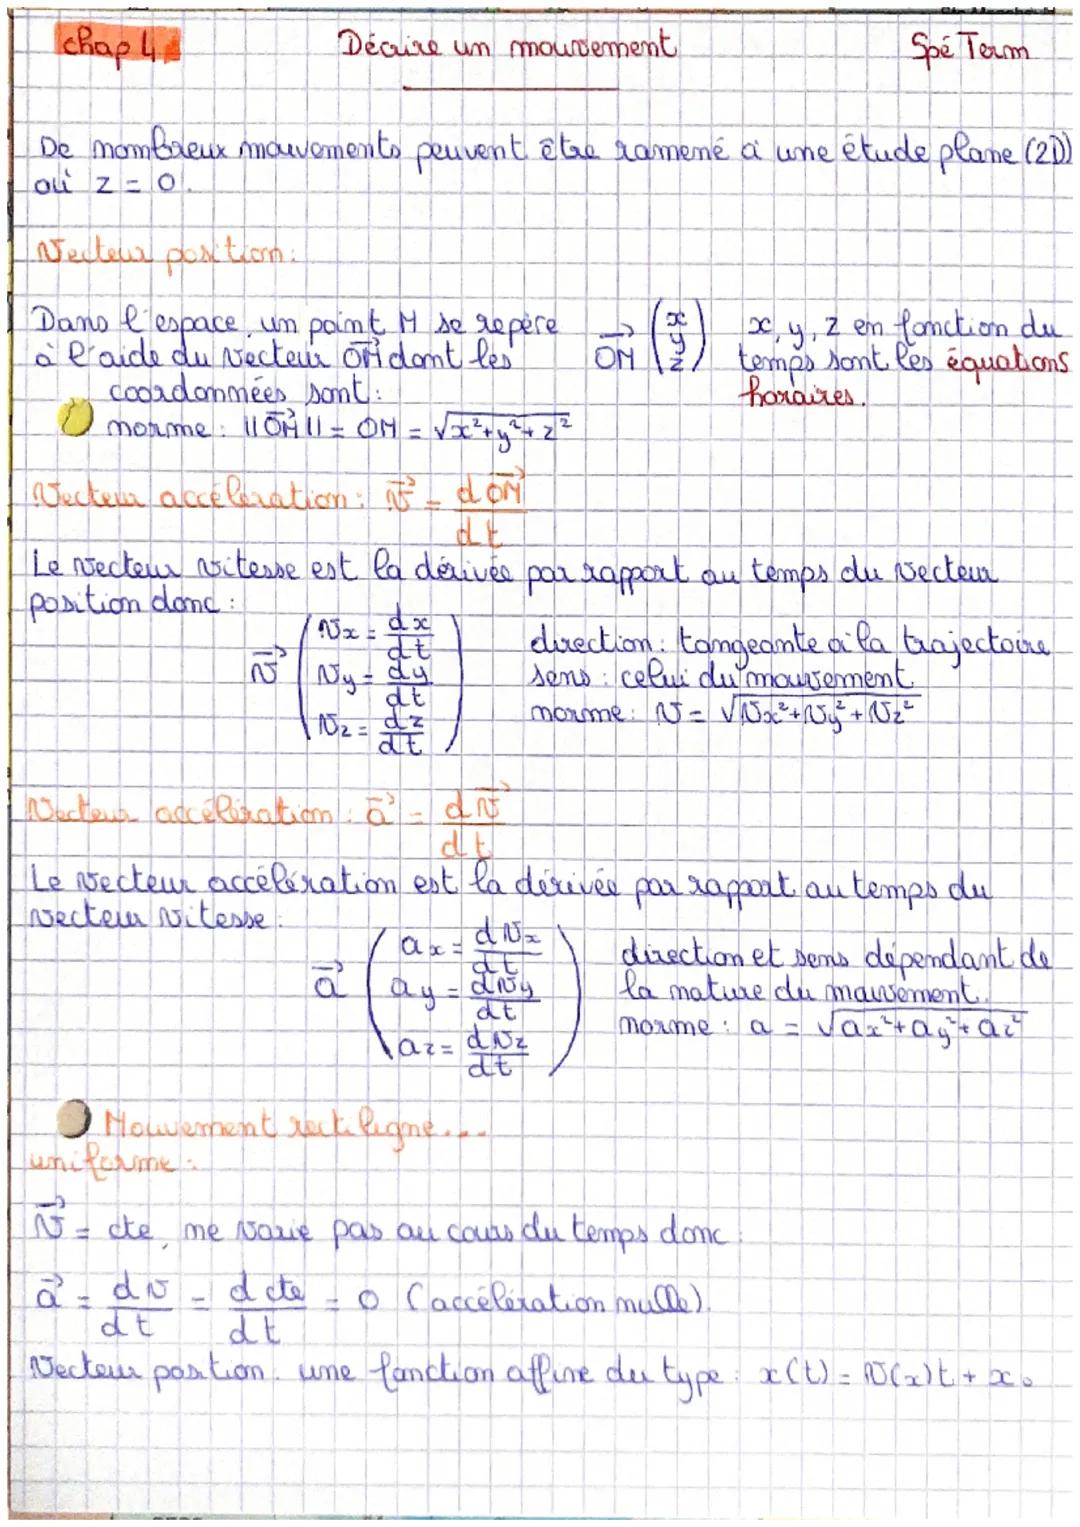 chap 4
Décrire un mouvement
Spé Term
De nombreux mouvements peuvent être ramené à une étude plane (2D)
où z = 0.
Vecteur position:
Dans l'espace, un point M se repère
à l'aide du vecteur OM⃗ dont les
coordonnées sont:
OM⃗ (x y z)
x, y, z en fonction du
temps sont les équations
horaires.
norme: ||OM⃗|| = OM = √x²+y²+z²
Vecteur accélération: v⃗ = dOM⃗/dt
Le vecteur vitesse est la dérivée par rapport au temps du vecteur
position donc:
v⃗ ( vx = dx/dt
vy = dy/dt
vz = dz/dt )
direction: tangeante à la trajectoire
sens: celui du mouvement
norme: v = √vx²+vy²+vz²
Vecteur accélération: a⃗ = dv⃗/dt
Le vecteur accélération est la dérivée par rapport au temps du
vecteur vitesse:
a⃗ ( ax = dvx/dt
ay = dvy/dt
az = dvz/dt )
direction et sens dépendant de
la nature du mouvement.
norme: a = √ax²+ay²+az²
Mouvement rectiligne...
uniforme:
v⃗ = cte, ne varie pas au cours du temps donc:
a⃗ = dv/dt = d cte/dt = 0 (accélération nulle).
Vecteur position: une fonction affine du type: x(t) = v(x)t + x₀